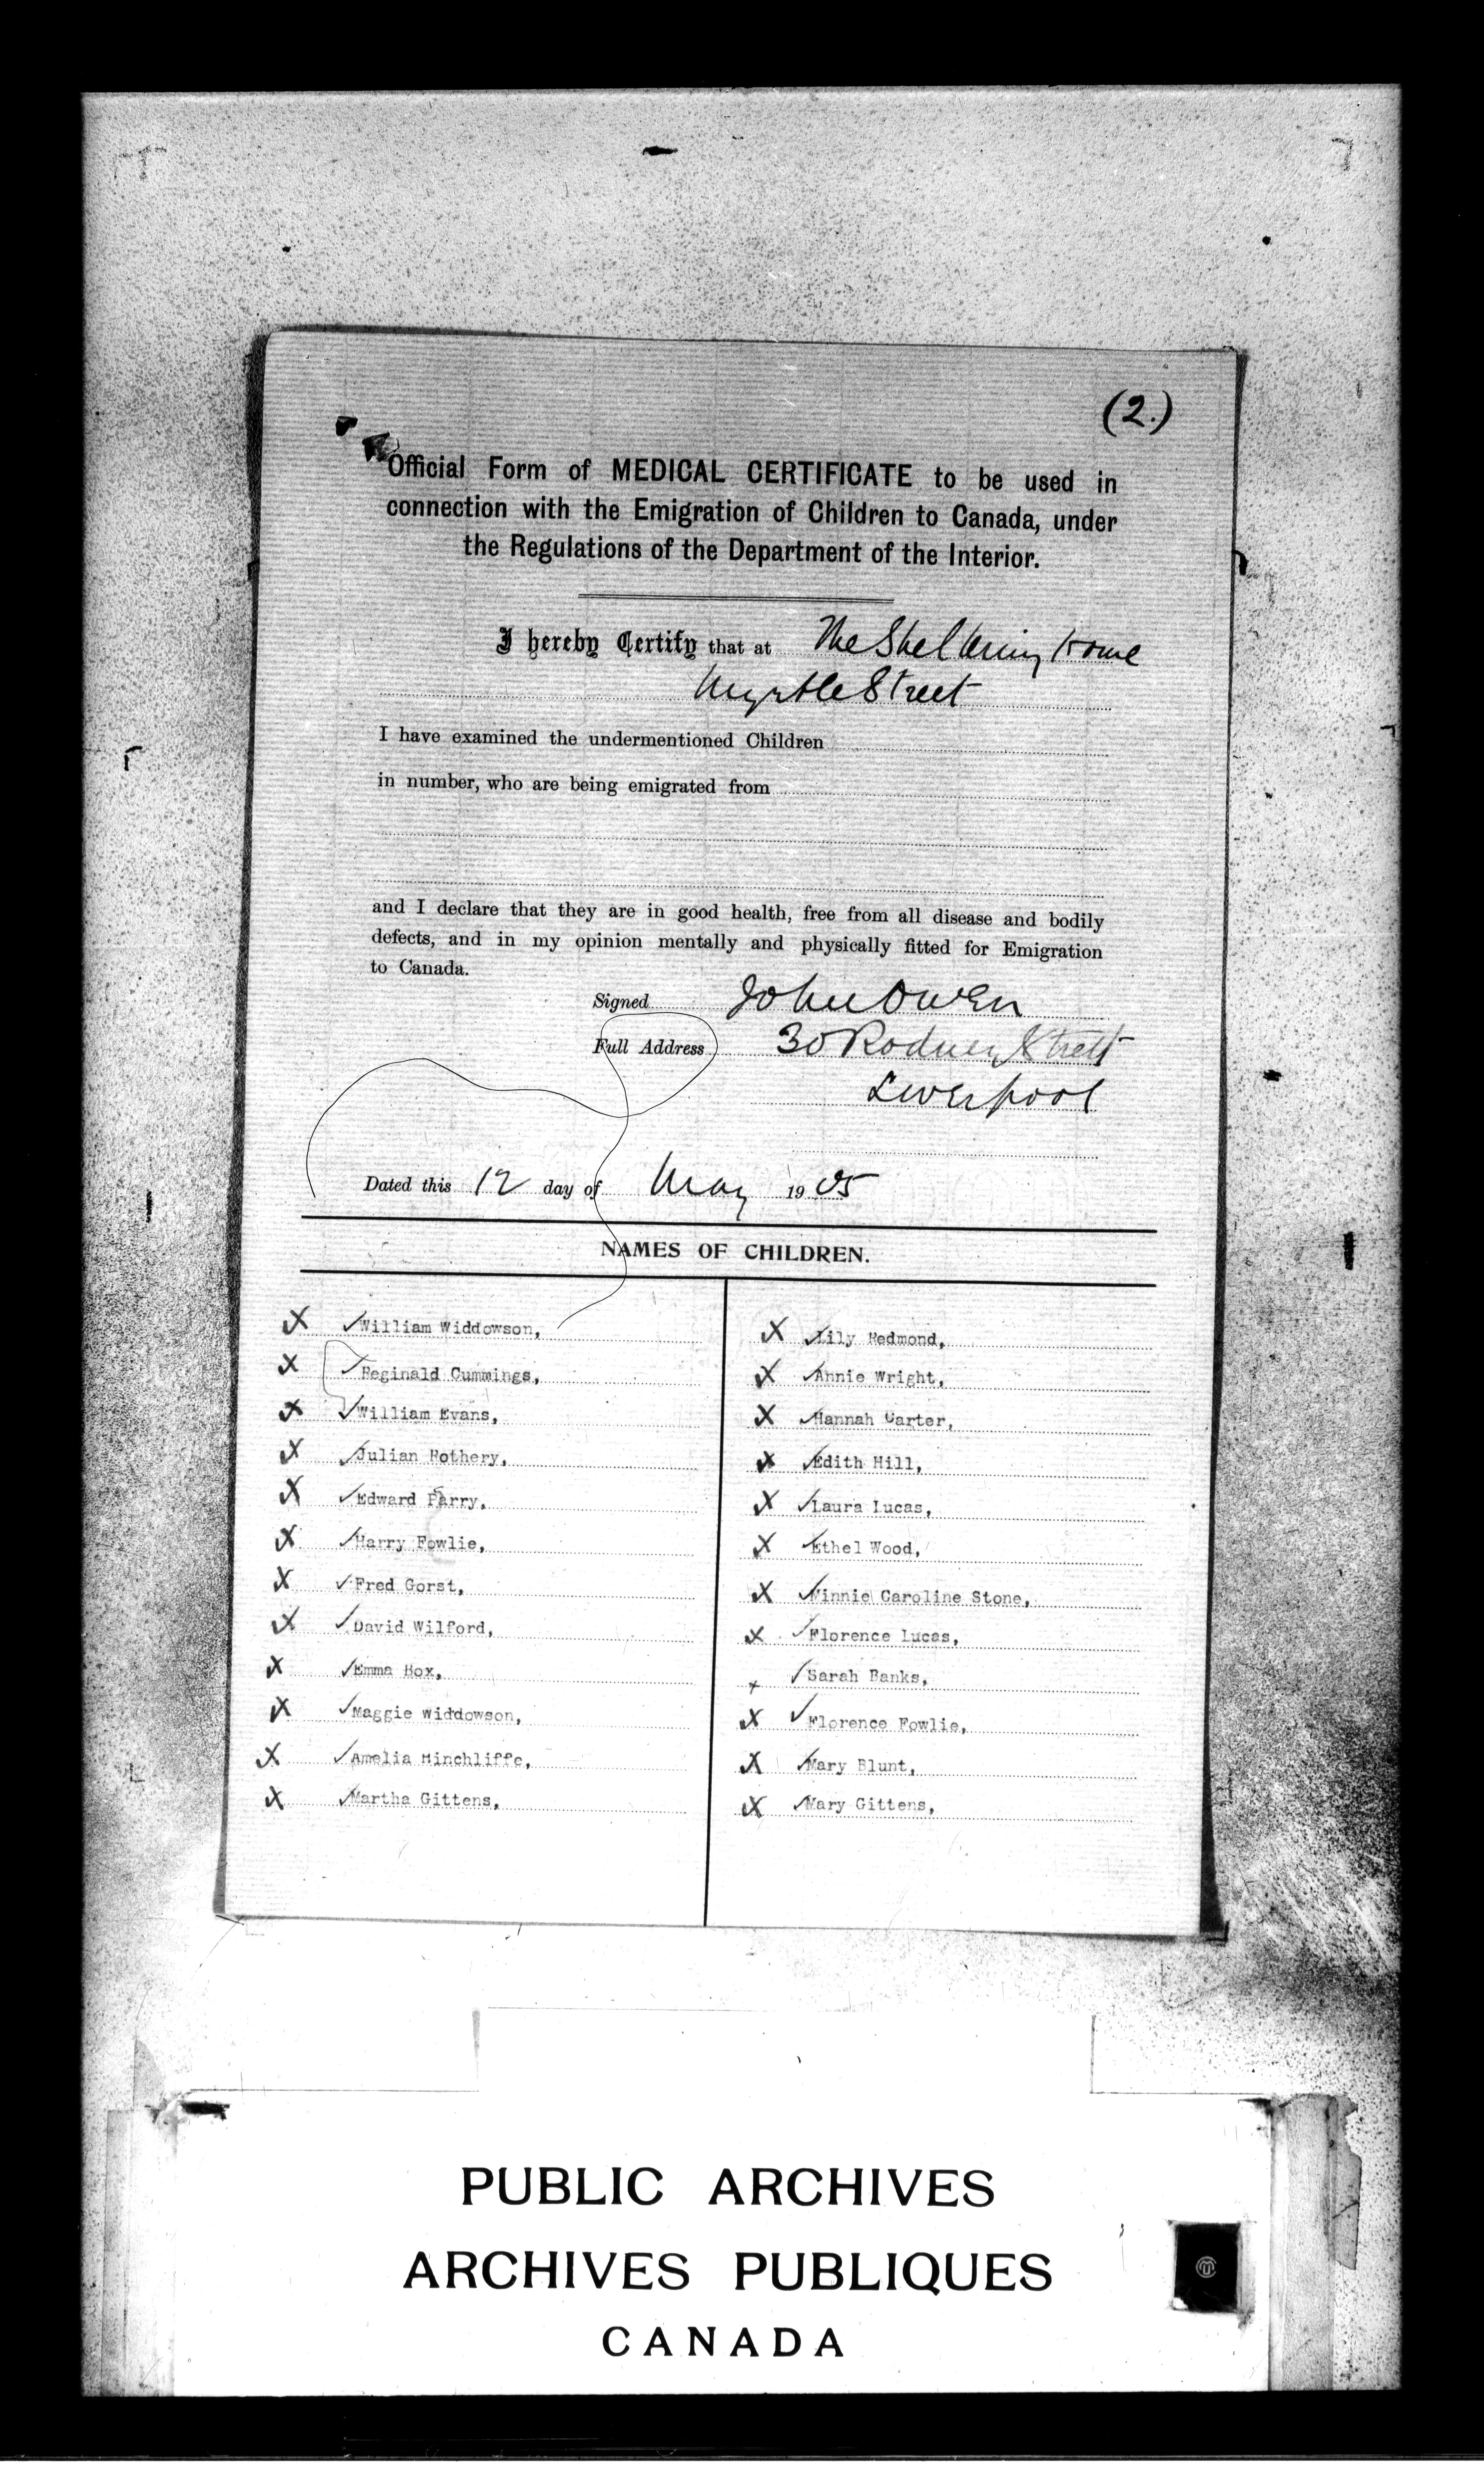 (2.)
Official Form of MEDICAL CERTIFICATE to be used in
connection with the Emigration of Children to Canada, under
the Regulations of the Department of the Interior.
I hereby Certify that at The Sheltering Home
Myrtle Street
I have examined the undermentioned Children
in number, who are being emigrated from
and I declare that they are in good health, free from all disease and bodily
defects, and in my opinion mentally and physically fitted for Emigration
to Canada.
Signed John Owen
Full Address 30 Rodney Street
Liverpool
Dated this 12 day of May 1905
NAMES OF CHILDREN.
X ✓ William Widdowson,
X ✓ Reginald Cummings,
X ✓ William Evans,
X ✓ Julian Rothery,
X ✓ Edward Parry,
X ✓ Harry Fowlie,
X ✓ Fred Gorst,
X ✓ David Wilford,
X ✓ Emma Box,
X ✓ Maggie Widdowson,
X ✓ Amelia Hinchliffe,
X ✓ Martha Gittens,
X ✓ Lily Redmond,
X ✓ Annie Wright,
X ✓ Hannah Carter,
X ✓ Edith Hill,
X ✓ Laura Lucas,
X ✓ Ethel Wood,
X ✓ Caroline Stone,
X ✓ Florence Lucas,
X ✓ Sarah Banks,
X ✓ Florence Fowlie,
X ✓ Mary Blunt,
X ✓ Mary Gittens,
PUBLIC ARCHIVES
ARCHIVES PUBLIQUES
CANADA